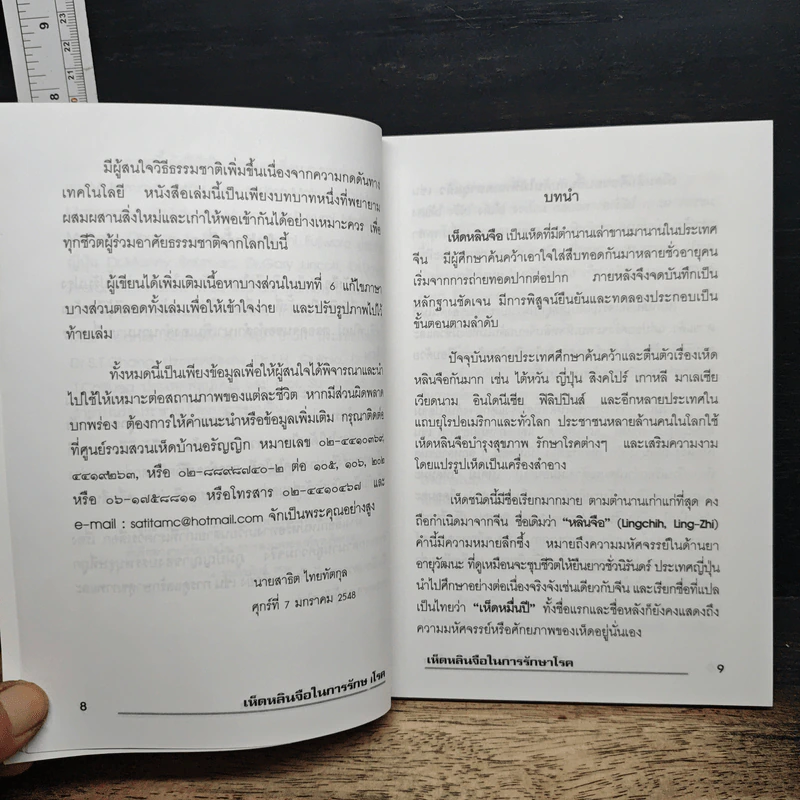 9
23
22
21
8
มีผู้สนใจวิธีธรรมชาติเพิ่มขึ้นเนื่องจากความกดดันทาง
เทคโนโลยี หนังสือเล่มนี้เป็นเพียงบทบาทหนึ่งที่พยายาม
ผสมผสานสิ่งใหม่และเก่าให้พอเข้ากันได้อย่างเหมาะควร เพื่อ
ทุกชีวิตผู้ร่วมอาศัยธรรมชาติจากโลกใบนี้
ผู้เขียนได้เพิ่มเติมเนื้อหาบางส่วนในบทที่ 6 แก้ไขภาษา
บางส่วนตลอดทั้งเล่มเพื่อให้เข้าใจง่าย และปรับรูปภาพไปไว้
ท้ายเล่ม
ทั้งหมดนี้เป็นเพียงข้อมูลเพื่อให้ผู้สนใจได้พิจารณาและนำ
ไปใช้ให้เหมาะต่อสถานภาพของแต่ละชีวิต หากมีส่วนผิดพลาด
บกพร่อง ต้องการให้คำแนะนำหรือข้อมูลเพิ่มเติม กรุณาติดต่อ
ที่ศูนย์รวมสวนเห็ดบ้านอรัญญิก หมายเลข ๐๒-๔๔๑๐๓๖๙,
๔๔๑๙๒๖๓, หรือ ๐๒-๘๘๙๘๗๔๐-๒ ต่อ ๑๐๕, ๑๐๖, ๒๐๒
หรือ ๐๖-๑๗๕๘๘๑๑ หรือโทรสาร ๐๒-๔๔๑๐๔๖๗ และ
e-mail : satitamc@hotmail.com จักเป็นพระคุณอย่างสูง
นายสาธิต ไทยทัตกุล
ศุกร์ที่ 7 มกราคม 2548
8
เห็ดหลินจือในการรักษาโรค
บทนำ
เห็ดหลินจือ เป็นเห็ดที่มีตำนานเล่าขานมานานในประเทศ
จีน มีผู้ศึกษาค้นคว้าเอาใจใส่สืบทอดกันมาหลายชั่วอายุคน
เริ่มจากการถ่ายทอดปากต่อปาก ภายหลังจึงจดบันทึกเป็น
หลักฐานชัดเจน มีการพิสูจน์ยืนยันและทดลองประกอบเป็น
ขั้นตอนตามลำดับ
ปัจจุบันหลายประเทศศึกษาค้นคว้าและตื่นตัวเรื่องเห็ด
หลินจือกันมาก เช่น ไต้หวัน ญี่ปุ่น สิงคโปร์ เกาหลี มาเลเซีย
เวียดนาม อินโดนีเซีย ฟิลิปปินส์ และอีกหลายประเทศใน
แถบยุโรปอเมริกาและทั่วโลก ประชาชนหลายล้านคนในโลกใช้
เห็ดหลินจือบำรุงสุขภาพ รักษาโรคต่างๆ และเสริมความงาม
โดยแปรรูปเห็ดเป็นเครื่องสำอาง
เห็ดชนิดนี้มีชื่อเรียกมากมาย ตามตำนานเก่าแก่ที่สุด คง
ถือกำเนิดมาจากจีน ชื่อเดิมว่า “หลินจือ” (Lingchih, Ling-Zhi)
คำนี้มีความหมายลึกซึ้ง หมายถึงความมหัศจรรย์ในด้านยา
อายุวัฒนะ ที่ดูเหมือนจะชุบชีวิตให้ยืนยาวชั่วนิรันดร์ ประเทศญี่ปุ่น
นำไปศึกษาอย่างต่อเนื่องจริงจังเช่นเดียวกับจีน และเรียกชื่อที่แปล
เป็นไทยว่า “เห็ดหมื่นปี” ทั้งชื่อแรกและชื่อหลังก็ยังคงแสดงถึง
ความมหัศจรรย์หรือศักยภาพของเห็ดอยู่นั่นเอง
เห็ดหลินจือในการรักษาโรค
9